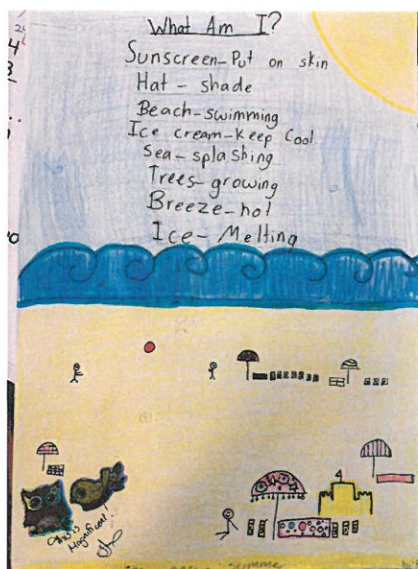 What Am I?
Sunscreen-Put on skin
Hat - shade
Beach-swimming
Ice cream-keep Cool
Sea-splashing
Trees-growing
Breeze-hot
Ice-Melting
This is
Magnificent!